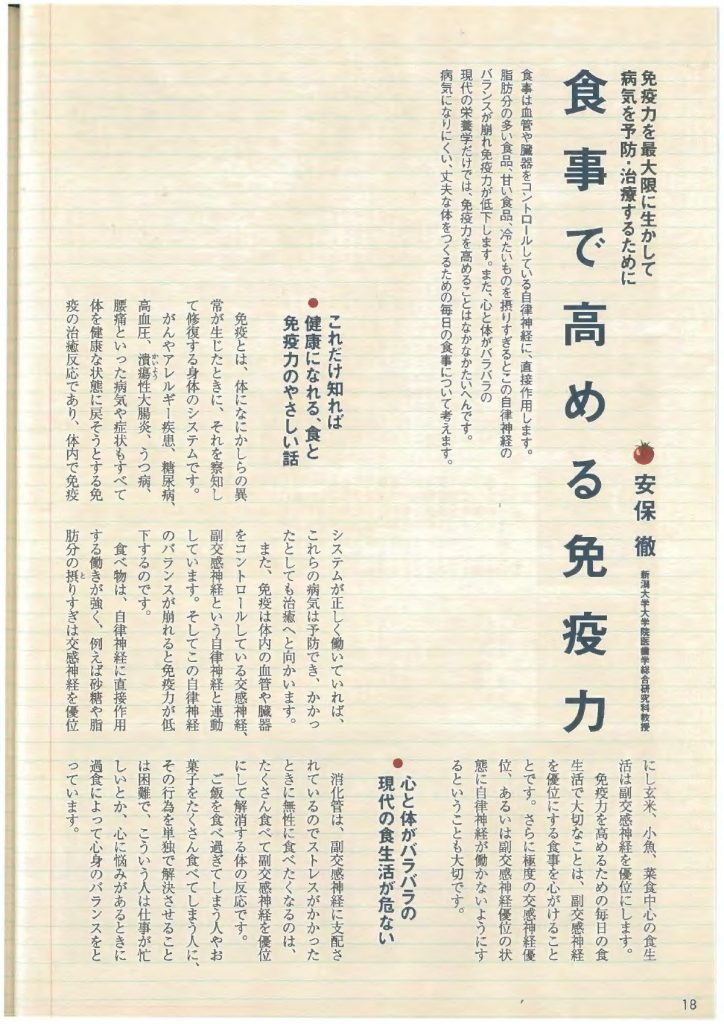 免疫力を最大限に生かして
病気を予防・治療するために
食事で高める免疫力
安保 徹
新潟大学大学院医歯学総合研究科教授
食事は血管や臓器をコントロールしている自律神経に、直接作用します。
脂肪分の多い食品、甘い食品、冷たいものを摂りすぎるとこの自律神経の
バランスが崩れ免疫力が低下します。また、心と体がバラバラの
現代の栄養学だけでは、免疫力を高めることはなかなかたいへんです。
病気になりにくい、丈夫な体をつくるための毎日の食事について考えます。
●これだけ知れば
健康になれる、食と
免疫力のやさしい話
免疫とは、体になにかしらの異
常が生じたときに、それを察知し
て修復する身体のシステムです。
がんやアレルギー疾患、糖尿病、
高血圧、潰瘍性大腸炎、うつ病、
かいよう
腰痛といった病気や症状もすべて
体を健康な状態に戻そうとする免
疫の治癒反応であり、体内で免疫
システムが正しく働いていれば、
これらの病気は予防でき、かかっ
たとしても治癒へと向かいます。
また、免疫は体内の血管や臓器
をコントロールしている交感神経、
副交感神経という自律神経と連動
しています。そしてこの自律神経
のバランスが崩れると免疫力が低
下するのです。
食べ物は、自律神経に直接作用
する働きが強く、例えば砂糖や脂
肪分の摂りすぎは交感神経を優位
と
にし玄米、小魚、菜食中心の食生
活は副交感神経を優位にします。
免疫力を高めるための毎日の食
生活で大切なことは、副交感神経
を優位にする食事を心がけること
とです。さらに極度の交感神経優
位、あるいは副交感神経優位の状
態に自律神経が働かないようにす
るということも大切です。
●心と体がバラバラの
現代の食生活が危ない
消化管は、副交感神経に支配さ
れているのでストレスがかかった
ときに無性に食べたくなるのは、
たくさん食べて副交感神経を優位
にして解消する体の反応です。
ご飯を食べ過ぎてしまう人やお
菓子をたくさん食べてしまう人に、
その行為を単独で解決させること
は困難で、こういう人は仕事が忙
しいとか、心に悩みがあるときに
過食によって心身のバランスをと
っています。
18